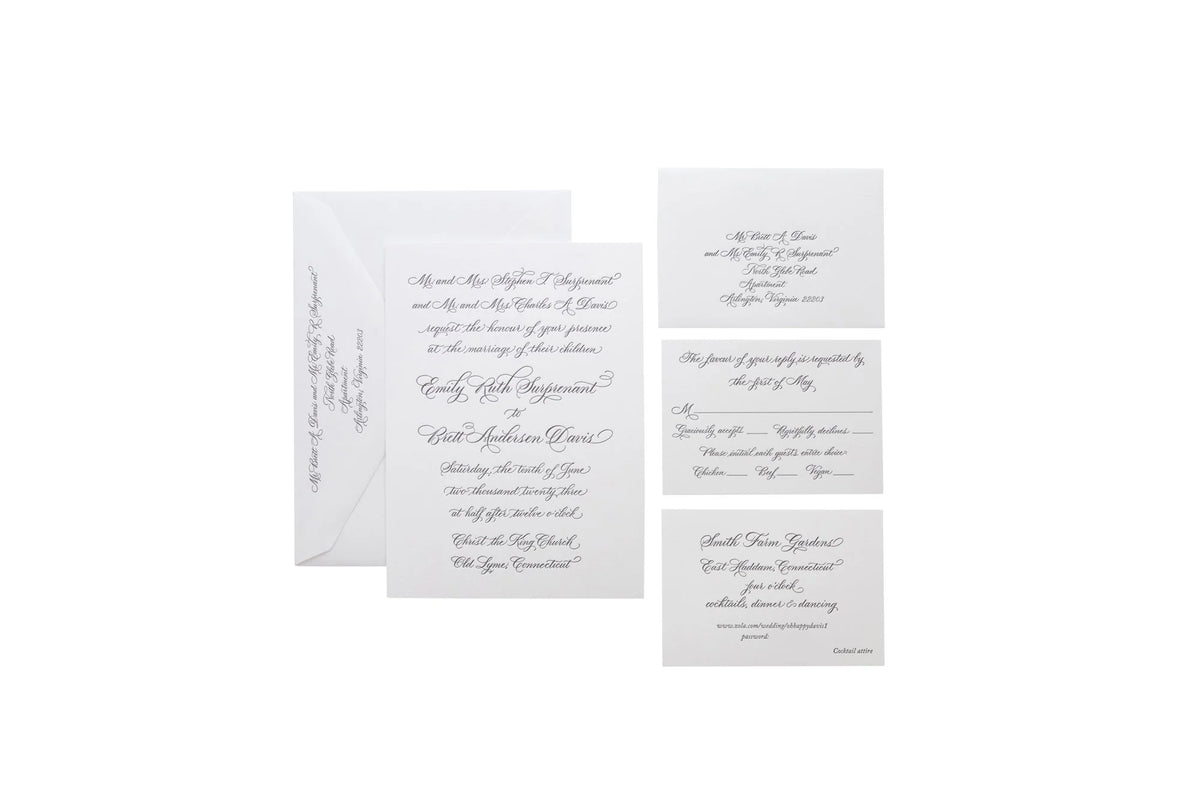 Mr. Brett A. Davis and Ms. Emily R. Surprenant
North Glebe Road
Apartment
Arlington, Virginia 22203
Mr. and Mrs. Stephen T. Surprenant
and Mr. and Mrs. Charles A. Davis
request the honour of your presence
at the marriage of their children
Emily Ruth Surprenant
to
Brett Andersen Davis
Saturday, the tenth of June
two thousand twenty three
at half after twelve o'clock
Christ the King Church
Old Lyme, Connecticut
Mr. Brett A. Davis
and Ms. Emily R. Surprenant
North Glebe Road
Apartment
Arlington, Virginia 22203
The favour of your reply is requested by
the first of May
M
Graciously accepts Regretfully declines
Please initial each guest's entrée choice
Chicken Beef Vegan
Smith Farm Gardens
East Haddam, Connecticut
four o'clock
cocktails, dinner & dancing
www.zola.com/wedding/ohhappydavis1
password:
Cocktail attire